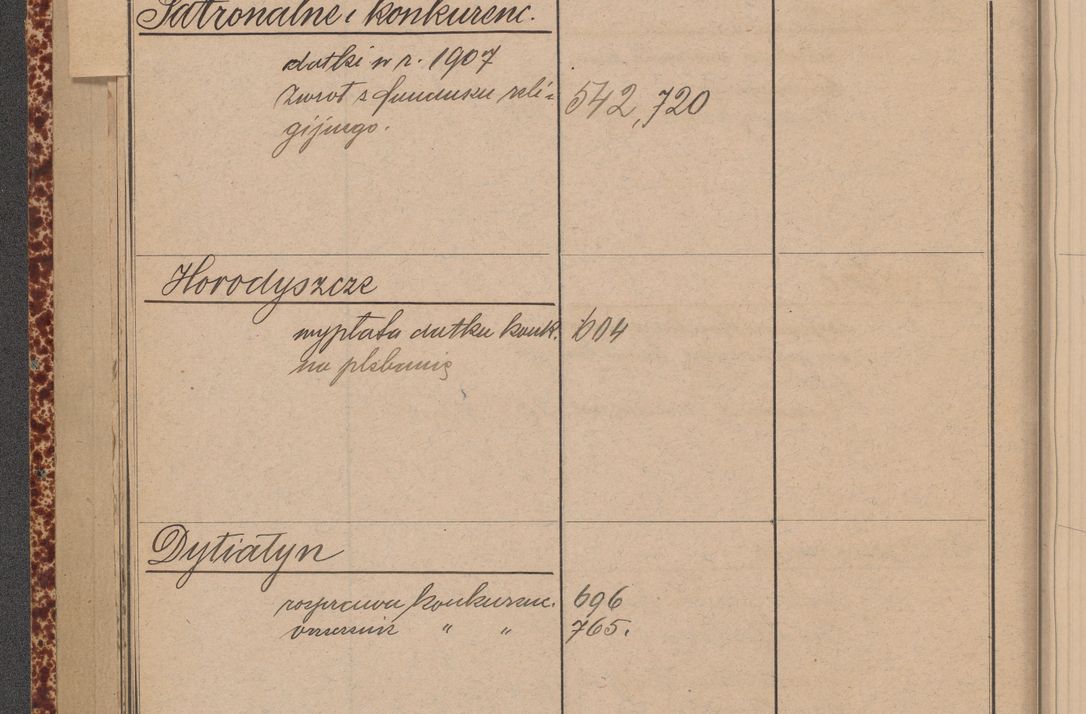 Patronalne i konkurenc.
datki w r. 1907
Zwrot z funduszu reli= 542, 720
gijnego.
Horodyszcze
wypłata datku konk. 604
na plebanię
Dytiatyn
rozprawa konkurenc. 696
orzeczenie " " 765.